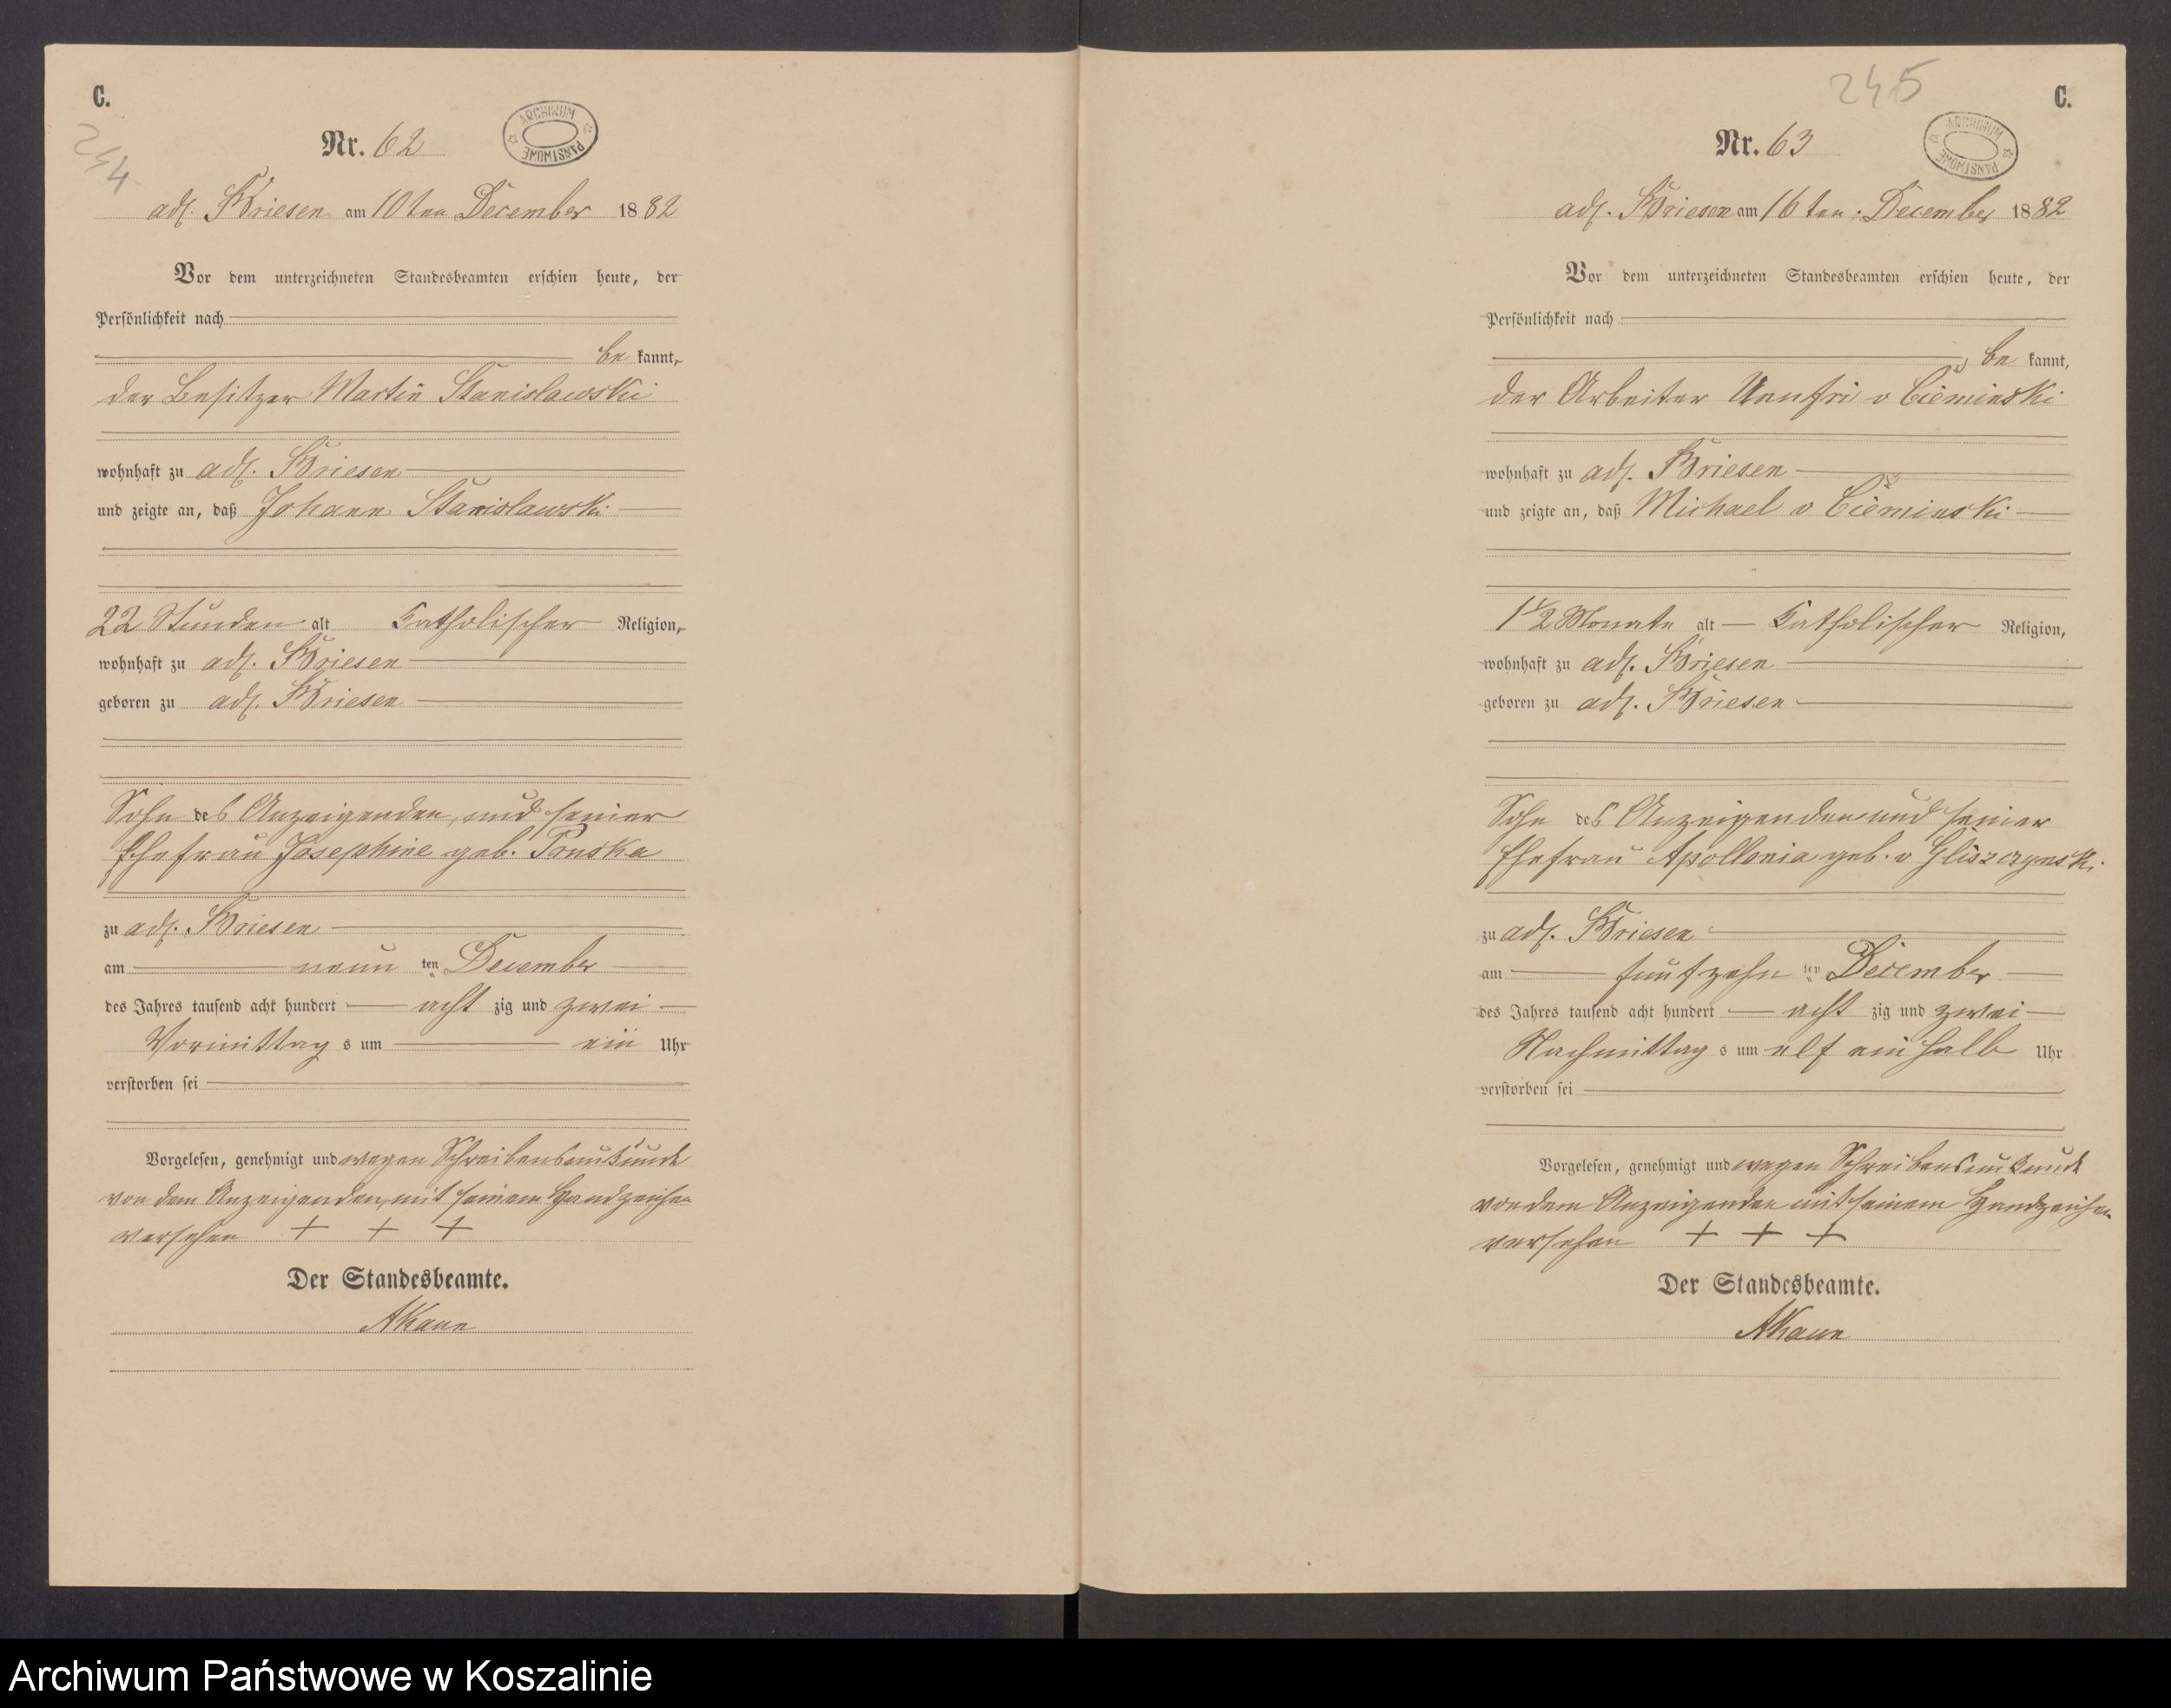 C.
244
ARCHIWUM PAŃSTWOWE
Nr. 62
adl. Briesen am 10ten December 1882
Vor dem unterzeichneten Standesbeamten erschien heute, der
Persönlichkeit nach
be kannt,
der Besitzer Martin Stanislawski
wohnhaft zu adl. Briesen
und zeigte an, daß Johann Stanislawski
22 Stunden alt Katholischer Religion,
wohnhaft zu adl. Briesen
geboren zu adl. Briesen
Sohn des Anzeigenden, und seiner
Ehefrau Josephine geb. Pruska
zu adl. Briesen
am neun ten December
des Jahres tausend acht hundert acht zig und zwei
Vormittag s um ein Uhr
verstorben sei
Vorgelesen, genehmigt und wegen Schreibensunkunde
von dem Anzeigenden, mit seinem Handzeichen
versehen + + +
Der Standesbeamte.
AKaun
245
C.
ARCHIWUM PAŃSTWOWE
Nr. 63
adl. Briesen am 16ten December 1882
Vor dem unterzeichneten Standesbeamten erschien heute, der
Persönlichkeit nach
be kannt,
der Arbeiter v Cieminski
wohnhaft zu adl. Briesen
und zeigte an, daß Michael v Cieminski
1 1/2 Monate alt Katholischer Religion,
wohnhaft zu adl. Briesen
geboren zu adl. Briesen
Sohn des Anzeigenden und seiner
Ehefrau Apollonia geb. v Gliszczynski
zu adl. Briesen
am funfzehn ten December
des Jahres tausend acht hundert acht zig und zwei
Nachmittag s um elf ein halb Uhr
verstorben sei
Vorgelesen, genehmigt und wegen Schreibensunkunde
von dem Anzeigenden mit seinem Handzeichen
versehen + + +
Der Standesbeamte.
AKaun
Archiwum Państwowe w Koszalinie